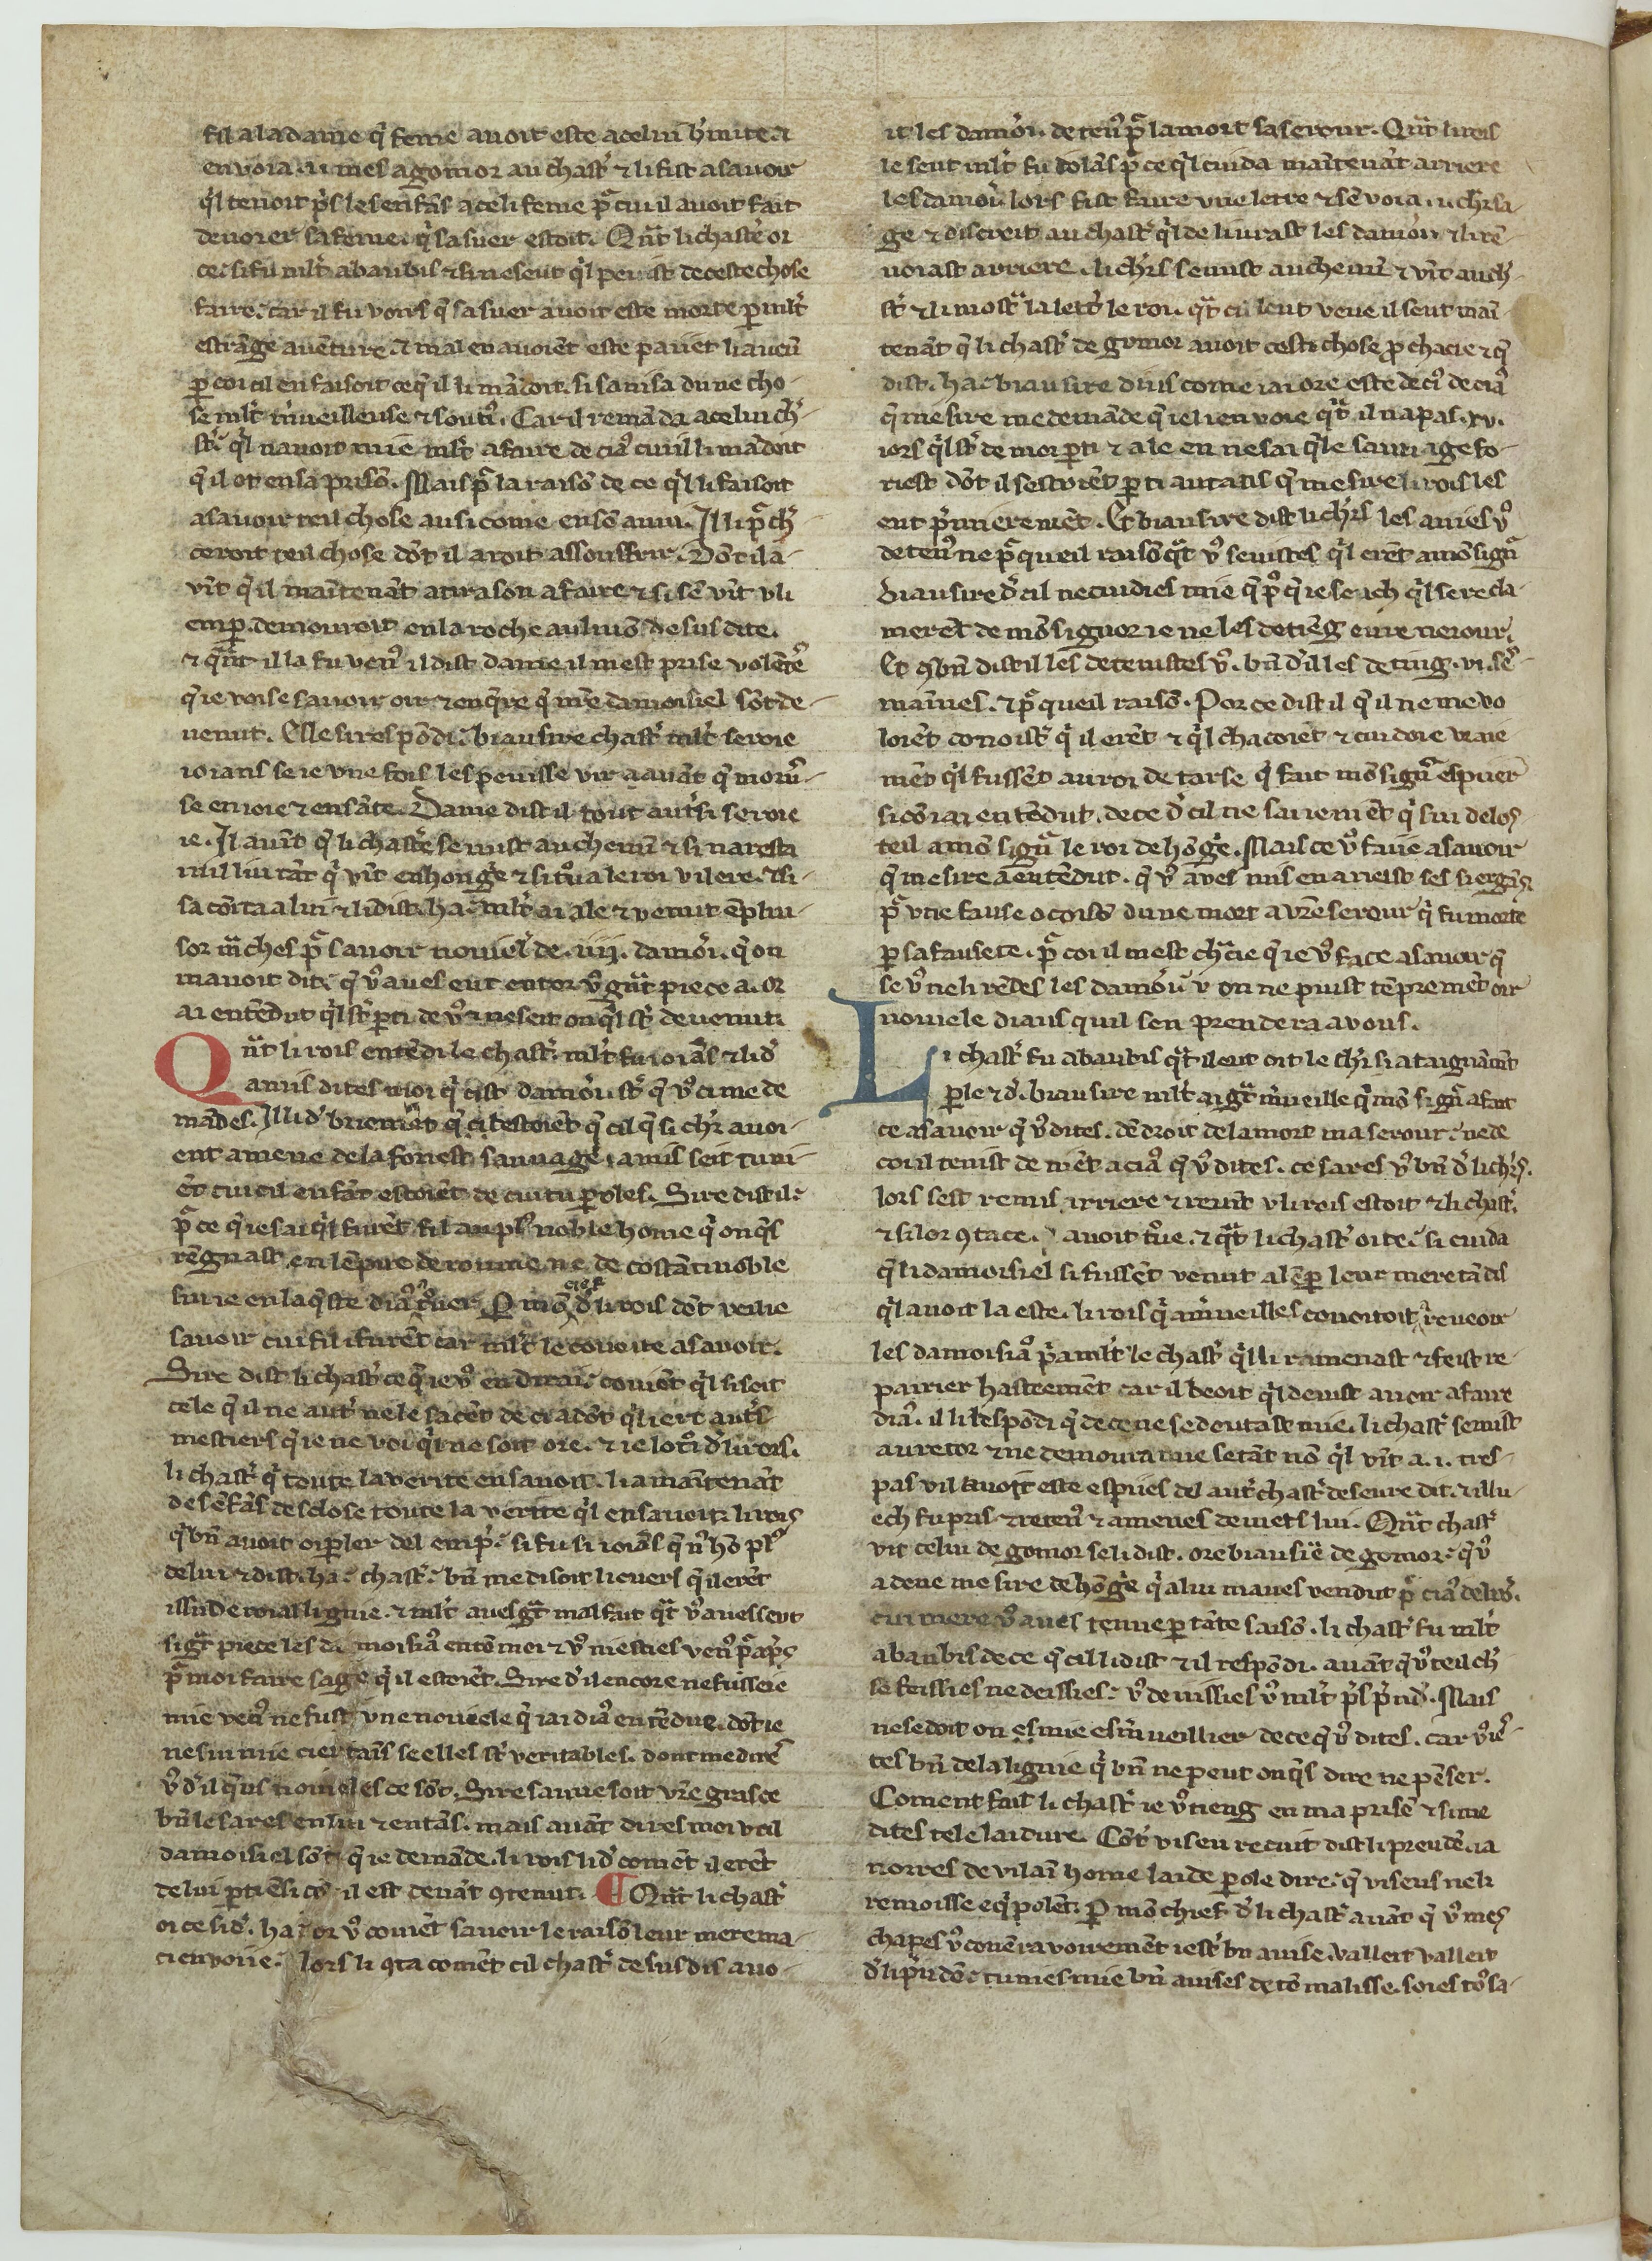 fil a la dame q̄ feme auoit este a celui h̾mite ⁊
enuoia .i. mes a gomor au chast̾ ⁊ li fist asauoir
q̾l tenoit p̾s les enfãs a celi feme pᵃ cui il auoit fait
deuorer sa feme. q̾ sa suer estoit. Qñt li chaste or
ce. si fu ml̾t abaubis ⁊ si ne seut q̾l peuist de ceste chose
faire. car il fu voirs q̄ sa suer auoit este morte p ml̾t
estrãge auenture. ⁊ mal en auoiẽt este paiiet li aucũ
p coi cil en faisoit ce q̄ il li mãdoit. si sauisa dune cho-
se ml̾t m̾ueilleuse ⁊ soutiˡ. Car il remãda a celui ch̾-
st̾. q̾l nauoit mie ml̾t a faire de ciaˡ cui il li mãdoit
q̄ il ot en sa prisõ. Mais pᵃ la raisõ de ce q̾l li faisoit
asauoir teil chose ausi come en sõ auiu. Il li pᵃch̾-
ceroit teil chose dõt il aroit assouffeir. Dõt il a-
vĩt q̄ il maĩtenãt atira son afaire ⁊ si sẽ vĩt v li
emp. demouroit en la roche au lniõ desus dite.
⁊ qᵃñt il la fu venˀ il dist dame il mest prise volẽte
q̄ ie voise sauoir oir ⁊ enq̄re q̄ mr̃e damoisiel sõt de-
uenut. Elle si respõdi. biau sire chast̾ ml̾t seroie
ioians se ie vne fois les peuisse vir auãt q̄ morˀ-
se en ioie ⁊ en sãte. Dame dist il tout aut̾si seroie
ie. Il auĩt q̄ li chaste se mist au chemĩ ⁊ si naresta
nuil liu tãt q̾ vĩt en hongˀe ⁊ si tˀua le roi vilere. ⁊ si
sa cõta a lui ⁊ li dist. ha. ml̾t ai ale ⁊ venut ẽ plui-
sor mᵃches pᵃ sauoir nouielˀ de .iiij. damoi. q̄ on
mauoit dit. q̄ vˀ aues eut entor vˀ gñt piece a. or
ai entẽdut q̾l st̾ pti de vˀ ⁊ ne seit on q̾l st̾ deuenut.
Qñt li rois entẽdi le chast̾. ml̾t fu ioiãs ⁊ li dˀ
amis dites moi q̾ cist damoi. st̾ q̄ vˀ ci me de
mãdes. Il li dˀ briemẽt q̄ ci lestoiẽt q̄ cil q̄ si ch̾r auoi-
ent amene de la foriest sauuage. amis seit tu ni-
ẽt cui cil enfãt estoiẽt de cui tu poles. Sire dist il.
pᵃ ce q̄ ie sai q̾l furẽt fil au plˀ noble home q̾ onq̾s
regnast en lẽpire de roume. ne de costãtinoble
sui ie en la q̄ste diaˀ tˀuer. P mõ cief dˀ li rois dõt veilie
sauoir cui fil i furẽt car ml̾t le couoite asauoir.
Sire dist li chast̾ ce q̄ ie vˀ en dirai. comẽt q̾l si soit
cele q̄ il ne aut̾ ne le sacẽt de ci adõt q̾l iert aut̾s
mestiers q̄ ie ne voi q̾l ne soit ore. ⁊ ie lotˀi dˀ li rois.
li chast̾ q̾ toute la verite en sauoit. li a maĩtenãt
des ẽfãs desclose toute la verite q̾l en sauoit. li rois
q̾ bñ auoit oi pler del emp̾. si fu si ioiãs q̄ nˀ hõ plˀ
de lui ⁊ dist. ha. chast̾. bñ me disoit li cuers q̄ il erẽt
issu de roial lignie. ⁊ ml̾t aues gᵃt mal fait qᵃt vˀ aues seut
si gᵃt piece les damoisiaˀ entõ moi ⁊ vˀ niesties venˀ pᵃ ap̾s
pᵃ moi faire sage q̾ il estoiẽt. Sire dˀ il encore ne fuisseie
mie venˀ ne fust vne nouiele q̄ iai diaˀ entẽdue. dõt ie
ne sui mie ciertaĩs se elles st̾ veritables. dont me dires
vˀ dˀ il q̄us nouieles ce sõt. Sire sauue soit vr̃e grasce
bñ le sares en lui ⁊ en tãs. mais auãt dires moi v cil
damoisiel sõt q̄ ie demãde. li rois li dˀ comẽt il erẽt
de lui pti ensi cõ il est deuãt ꝯtenut. ¶ Qñt li chast̾
oi ce si dˀ. ha. or vˀ couiẽt sauoir le raisõ leur mere ma-
ci enuoiie. lors li ꝯta comẽt cil chast̾ desus dis auo-
it les damoi. detenˀ pᵃ la mort sa serour. Qñt li rois
le seut ml̾t fu dolãs pᵃ ce q̾l cuida maĩtenãt arriere
les damoi. lors fist faire vne letre ⁊ sẽuoia .i. ch̾r sa-
ge ⁊ discreit au chast̾ q̾l deliurast les damoi. ⁊ li rẽ-
uoiast arriere. li ch̾rs se mist au chemĩ ⁊ vĩt au ch̾-
st̾ ⁊ li mostᵃ la letr̾ le roi. qᵃt cil leut veue il seut maĩ-
tenãt q̄ li chast̾ de gomor auoit ceste chose pchacie ⁊ q̄
dist. ha. biau sire dius come iai ore este deciˀ de ciaˀ
q̄ me sire me demãde q̄ ie li enuoie qᵃt il na pas .xv.
iors q̾l st̾ de moi pti ⁊ ale en ne sai q̾le sauuage fo-
riest dõt il sestoiẽt pti autãs q̄ me sire li rois les
ent p̾mieremẽt. Et biau sire dist li ch̾rs les auies vˀ
detenˀ ne pᵃ queil raisõ qᵃt vˀ seuistes q̾l erẽt a mõ signᵃ
biau sire dˀ cil ne cuidies mie q̄ pˀ q̄ ie seuch q̾l se recla-
merẽt de mõ signor ie ne les detieg mie ne iour.
Et ꝯbñ dist il les detenistes vˀ. bñ dˀ il les deting .vi. se-
maines. ⁊ pᵃ queil raisõ. Por ce dist il q̄ il ne me vo
loiẽt conoist̾ q̾ il erẽt ⁊ q̾l chacoiẽt ⁊ cuidoie vraie
mẽt q̾l fussẽt au roi de tarse q̾ fait mõ signᵃ espuer
si cõ iai entẽdut. de ce dˀ cil ne sai niemẽt q̄ sui delos
teil a mõ signᵃ le roi de hõgˀe. Mais ce vˀ faiie asauoir
q̄ me sire a entẽdut. q̄ vˀ aues mis en ariest ses siergãs
pᵃ vne fause ocoisõ dune mort a vr̃e serour q̾ fu morte
p sa fausete. pᵃ coi il mest ch̾cie q̄ ie vˀ face asauoir q̄
se vˀ ne li rẽdes les damoi. v on ne puist tẽpremẽt oir
nouiele diaus quil sen prendera a vous.
Li chast̾ fu abaubis qᵃt il eut oit le ch̾r si ataignãmt
ple ⁊ dˀ. biau sire ml̾t ai gᵃt m̾ueille q̾ mõ signᵃ a fait
ce asauoir q̄ vˀ dites. de droit de la mort ma serour. ne de
coi il tenist de niẽt a ciaˀ q̄ vˀ dites. ce sares vˀ bñ dˀ li ch̾rs.
lors sest remis arriere ⁊ reuĩt v li rois estoit ⁊ li chast̾.
⁊ si lor ꝯta ce. q̾ auoit tˀue. ⁊ qᵃt li chast̾ oi te. si cuida
q̄ li damoisiel si fussẽt venut a lẽp leur mere tãdis
q̾l auoit la este. li rois q̾ a m̾ueilles couoitoit a reueoir
les damoisiaˀ p̾a ml̾t le chast̾ q̾l li ramenast ⁊ feist re
pairier hastiemẽt car il beoit q̾l deuist auoir a faire
diaˀ. il li respõdi q̄ de ce ne se doutast mie. li chast̾ se mist
au retor ⁊ ne demoura mie se tãt nõ q̾l vĩt a .i. tres-
pas v il auoit este espiies del aut̾ chast̾ deseure dit. ⁊ illu-
ech fu pris ⁊ retenˀ ⁊ amenes deuiers lui. Qñt chast̾
vit celui de gomor se li dist. ore biau sire de gomor. q̄ vˀ
a deue me sire de hõgˀe q̾ a lui maues vendut pᵃ ciaˀ deliurˀ.
cui mere vˀ aues tenue p tãte saisõ. li chast̾ fu ml̾t
abaubis de ce q̄ cil li dist ⁊ il respõdi. auãt q̄ vˀ teil ch̾-
se feissies ne deissies. vˀ deuissies vˀ ml̾t p̾s p̾ndˀ. Mais
ne se doit on mie esm̾ueillier de ce q̄ vˀ dites. car vˀ ies-
tes bñ de la lignie q̾ bñ ne peut onq̾s dire ne pẽser.
Coment fait li chast̾ ie vˀ tieng en ma prisõ ⁊ si me
dites tele laidure. Cõt viseu recuit dist li preudõ. ia
noires de vilaĩ home laide pole dire. q̄ viseus ne li
remoisse eq̾polẽt. P mõ chief dˀ li chast̾ auãt q̄ vˀ mes
chapes vˀ couẽra voiremẽt iestˀ bñ auise. valleit valleit
dˀ li p̾udõ. tu nes mie bñ auises de tõ malisse. soies tˀo sa-